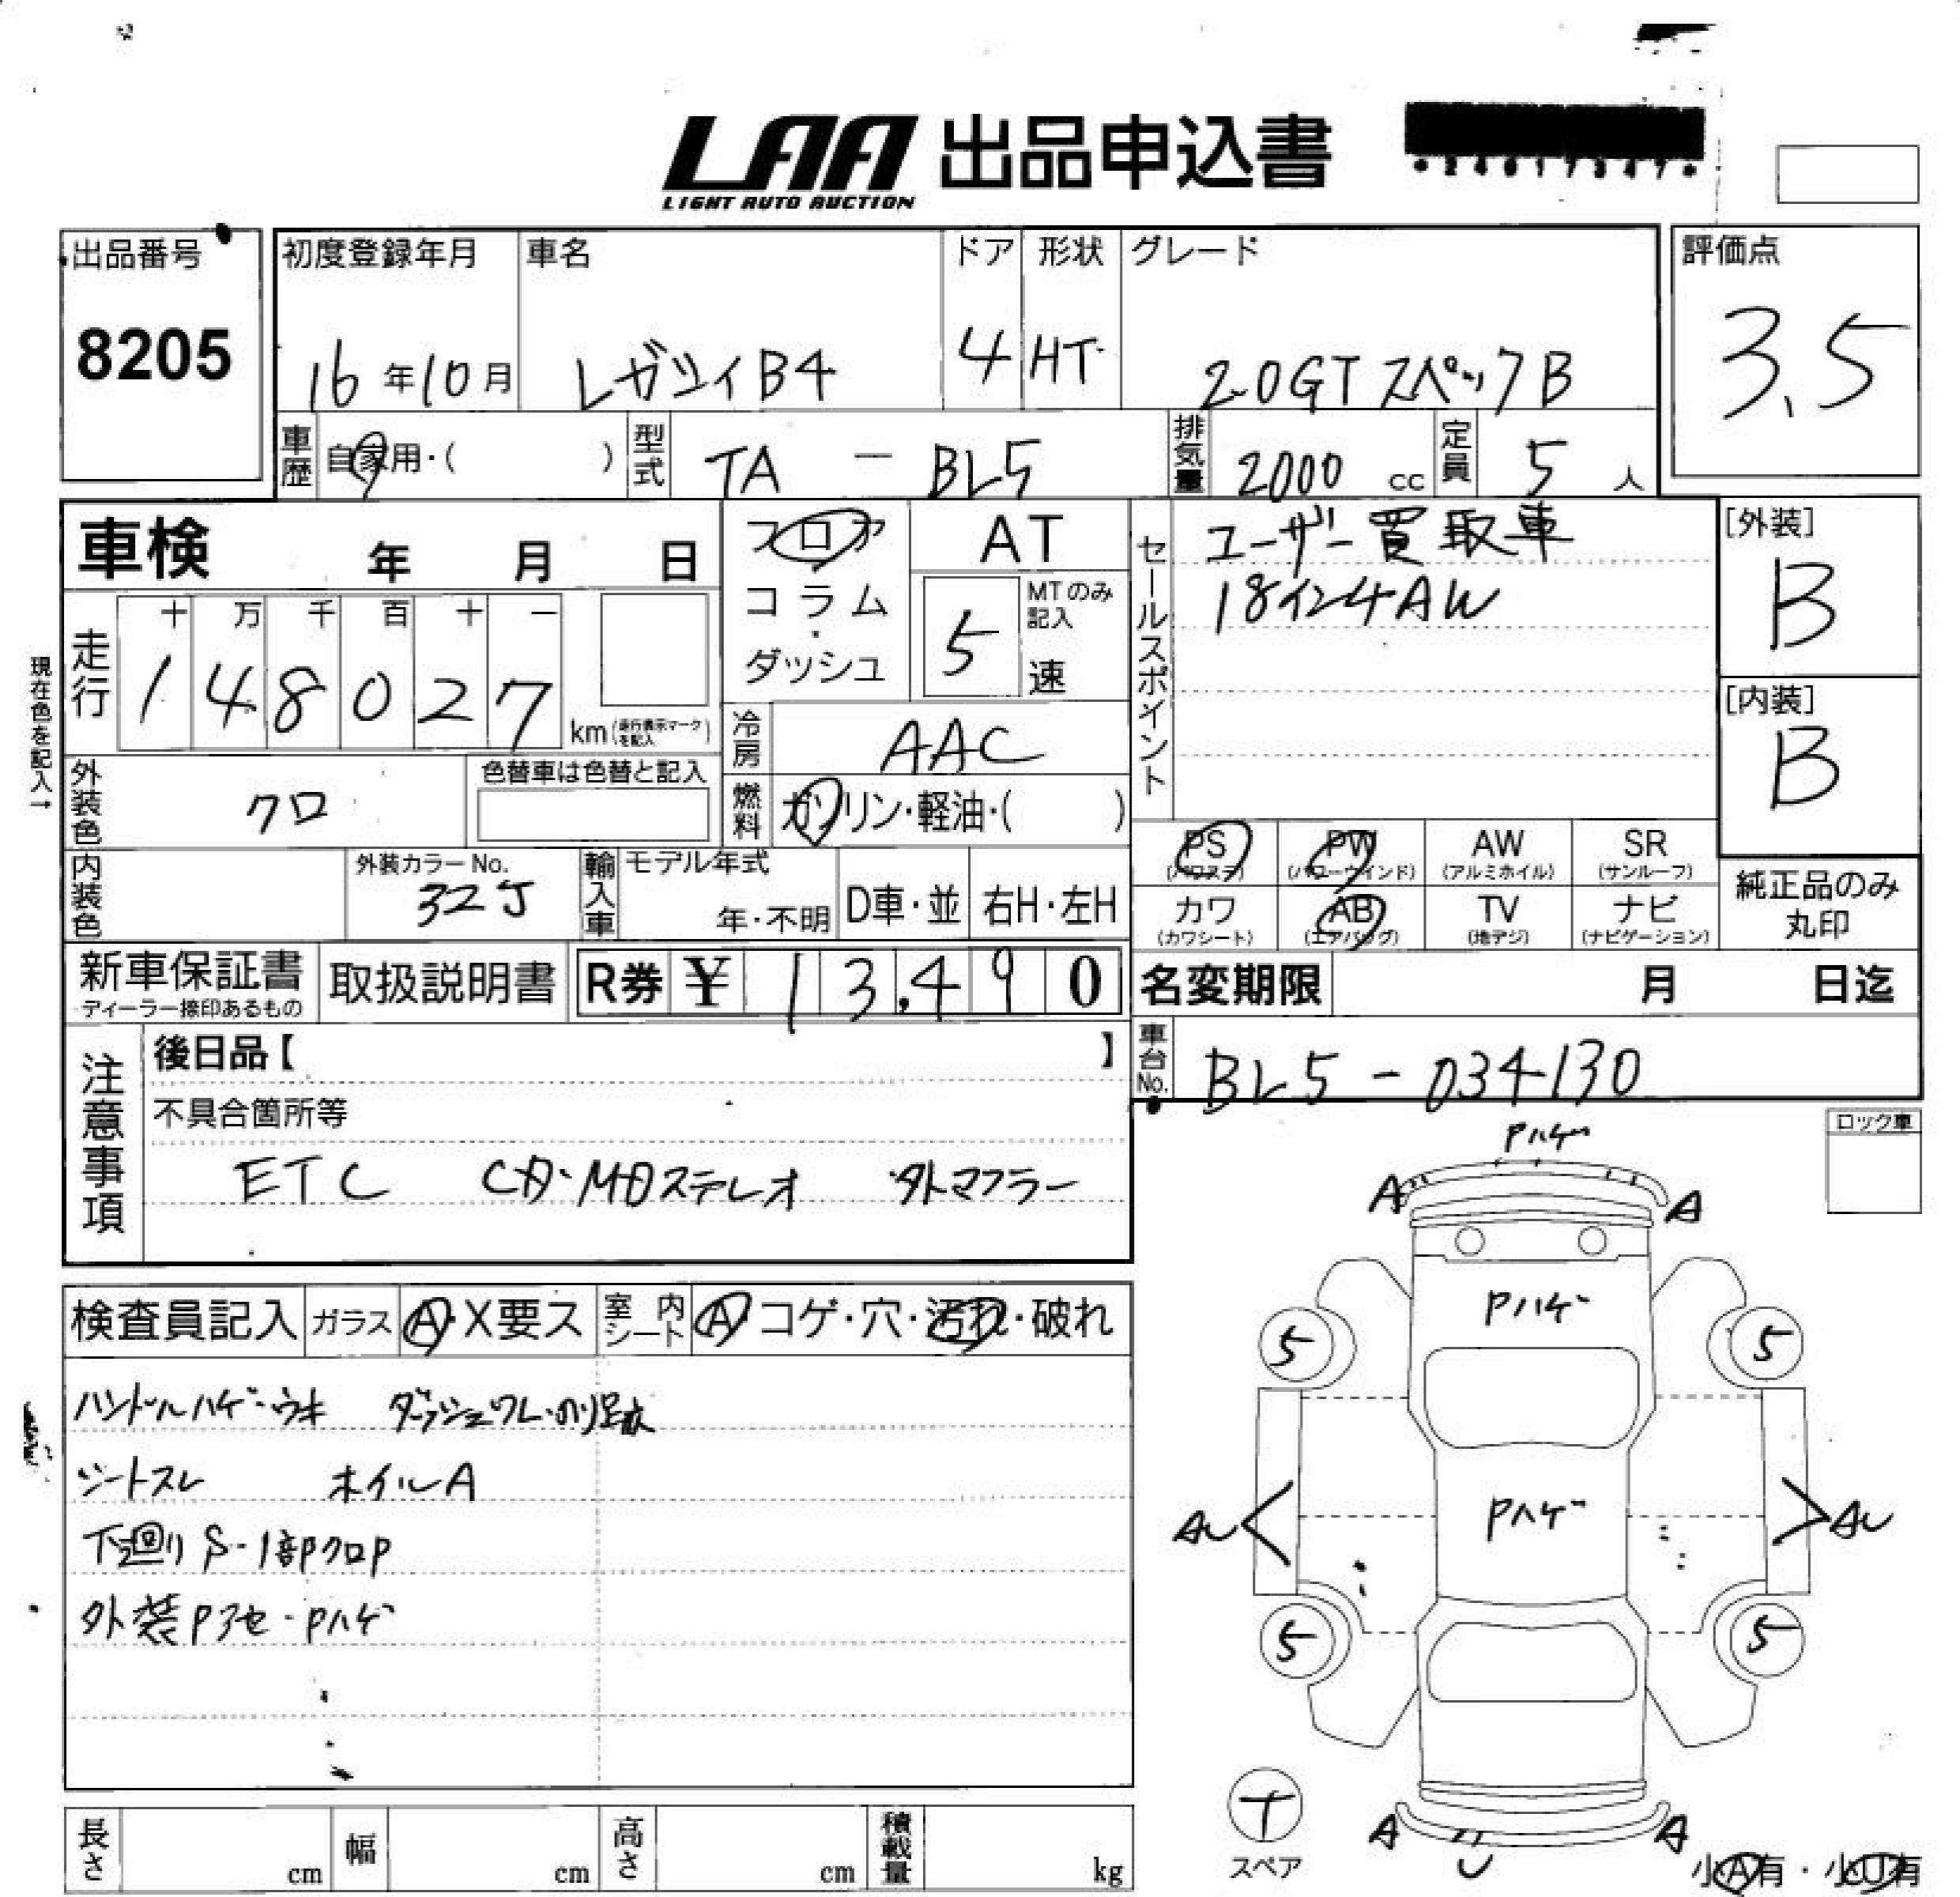 LAA 出品申込書
LIGHT AUTO AUCTION
出品番号
8205
初度登録年月
16年10月
車名
レガシィB4
ドア
4
形状
HT
グレード
2.0GT スペックB
評価点
3.5
車歴 自家用・( )
型式 TA - BL5
排気量 2000 cc
定員 5 人
車検 年 月 日
フロア
コラム
・
ダッシュ
AT
MTのみ記入
5 速
セールスポイント
ユーザー買取車
18インチAW
[外装]
B
[内装]
B
現在色を記入→
走行
十 万 千 百 十 一
1 4 8 0 2 7
km(走行表示マークを記入)
冷房 AAC
外装色 クロ
色替車は色替と記入
燃料 ガソリン・軽油・( )
PS (パワステ)
PW (パワーウインド)
AW (アルミホイル)
SR (サンルーフ)
カワ (カワシート)
AB (エアバッグ)
TV (地デジ)
ナビ (ナビゲーション)
純正品のみ
丸印
内装色
外装カラーNo.
32J
輸入車
モデル年式
年・不明
D車・並
右H・左H
新車保証書
ディーラー捺印あるもの
取扱説明書
R券 ¥ 13,490
名変期限 月 日迄
車台No. BL5-034130
注意事項
後日品【 】
不具合箇所等
ETC CD・MDステレオ 外マフラー
ロック車
検査員記入
ガラス A・X要ス
室内シート A コゲ・穴・汚れ・破れ
ハンドルハゲ・ウキ ダッシュワレ・のり跡
シートスレ ホイルA
下廻りS・1部クロP
外装Pアセ・Pハゲ
Pハゲ
A A
Pハゲ
5 5
Pハゲ
AU AU
5 5
T
スペア
A A
U
小A有・小U有
長さ cm
幅 cm
高さ cm
積載量 kg